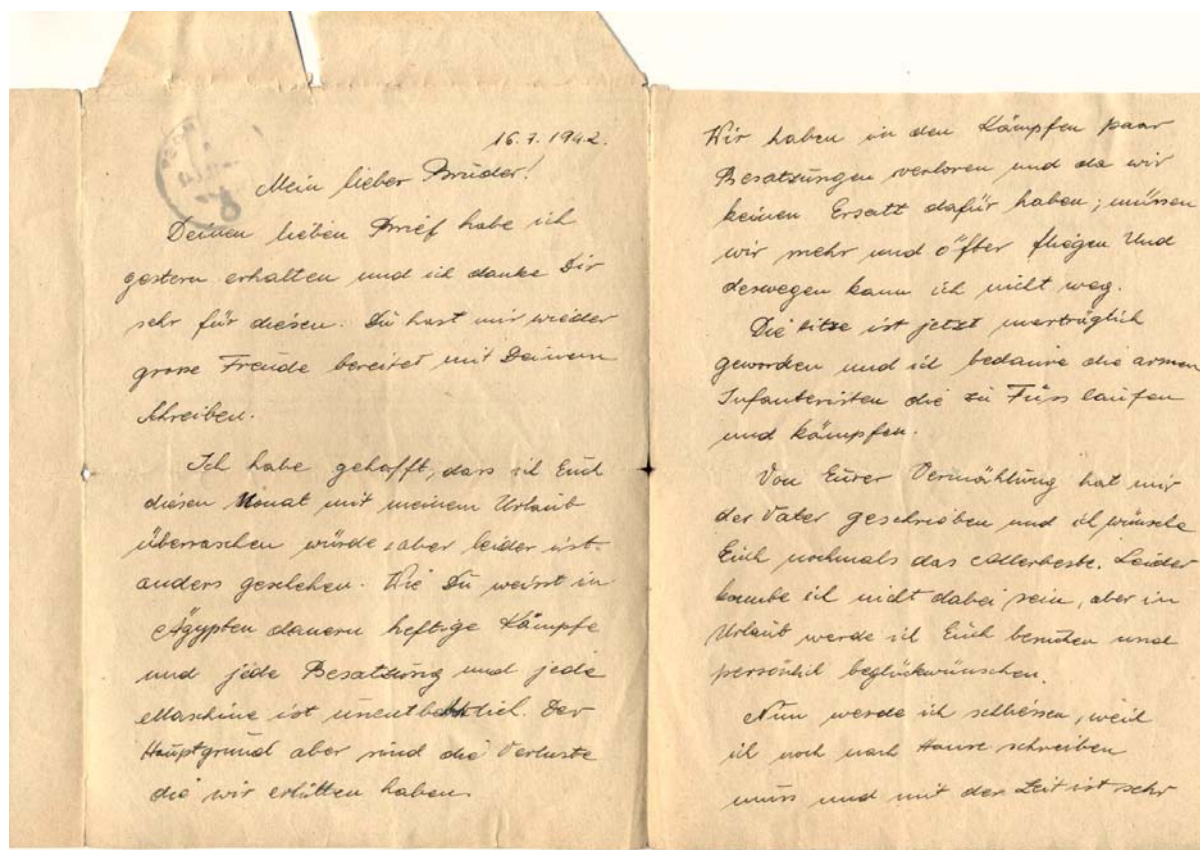 16.7.1942.
Mein lieber Bruder!
Deinen lieben Brief habe ich
gestern erhalten und ich danke Dir
sehr für diesen. Du hast mir wieder
grosse Freude bereitet mit Deinem
Schreiben.
Ich habe gehofft, dass ich Euch
diesen Monat mit meinem Urlaub
überraschen würde, aber leider ist
anders geschehen. Wie Du weisst in
Ägypten dauern heftige Kämpfe
und jede Besatzung und jede
Maschine ist unentbehrlich. Der
Hauptgrund aber sind die Verluste
die wir erlitten haben.
Wir haben in den Kämpfen paar
Besatzungen verloren und da wir
keinen Ersatt dafür haben; müssen
wir mehr und öfter fliegen Und
deswegen kann ich nicht weg.
Die Hitze ist jetzt unerträglich
geworden und ich bedaure die armen
Infanteristen die zu Fuss laufen
und kämpfen.
Von Eurer Vermählung hat mir
der Vater geschrieben und ich wünsche
Euch nochmals das Allerbeste. Leider
konnte ich nicht dabei sein, aber in
Urlaub werde ich Euch besuchen und
persönlich beglückwünschen.
Nun werde ich schliessen, weil
ich noch nach Hause schreiben
muss und mit der Zeit ist sehr